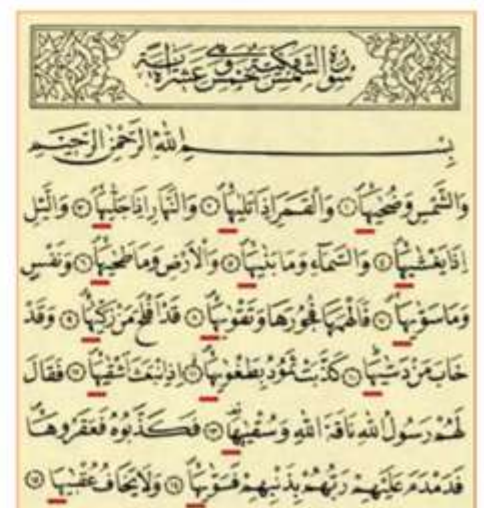 سورة الشمس مكية وهي خمس عشرة اية
بِسْمِ اللّٰهِ الرَّحْمٰنِ الرَّحِيمِ
وَالشَّمْسِ وَضُحٰيهَاۙ ﴿١﴾ وَالْقَمَرِ اِذَا تَلٰيهَاۙ ﴿٢﴾ وَالنَّهَارِ اِذَا جَلّٰيهَاۙ ﴿٣﴾ وَالَّيْلِ
اِذَا يَغْشٰيهَاۙ ﴿٤﴾ وَالسَّمَٓاءِ وَمَا بَنٰيهَاۙ ﴿٥﴾ وَالْاَرْضِ وَمَا طَحٰيهَاۙ ﴿٦﴾ وَنَفْسٍ
وَمَا سَوّٰيهَاۙ ﴿٧﴾ فَاَلْهَمَهَا فُجُورَهَا وَتَقْوٰيهَاۙ ﴿٨﴾ قَدْ اَفْلَحَ مَنْ زَكّٰيهَاۙ ﴿٩﴾ وَقَدْ
خَابَ مَنْ دَسّٰيهَاۜ ﴿١٠﴾ كَذَّبَتْ ثَمُودُ بِطَغْوٰيهَاۙ ﴿١١﴾ اِذِ انْبَعَثَ اَشْقٰيهَاۙ ﴿١٢﴾ فَقَالَ
لَهُمْ رَسُولُ اللّٰهِ نَاقَةَ اللّٰهِ وَسُقْيٰيهَاۜ ﴿١٣﴾ فَكَذَّبُوهُ فَعَقَرُوهَاۙ
فَدَمْدَمَ عَلَيْهِمْ رَبُّهُمْ بِذَنْبِهِمْ فَسَوّٰيهَاۙ ﴿١٤﴾ وَلَا يَخَافُ عُقْبٰيهَا ﴿١٥﴾